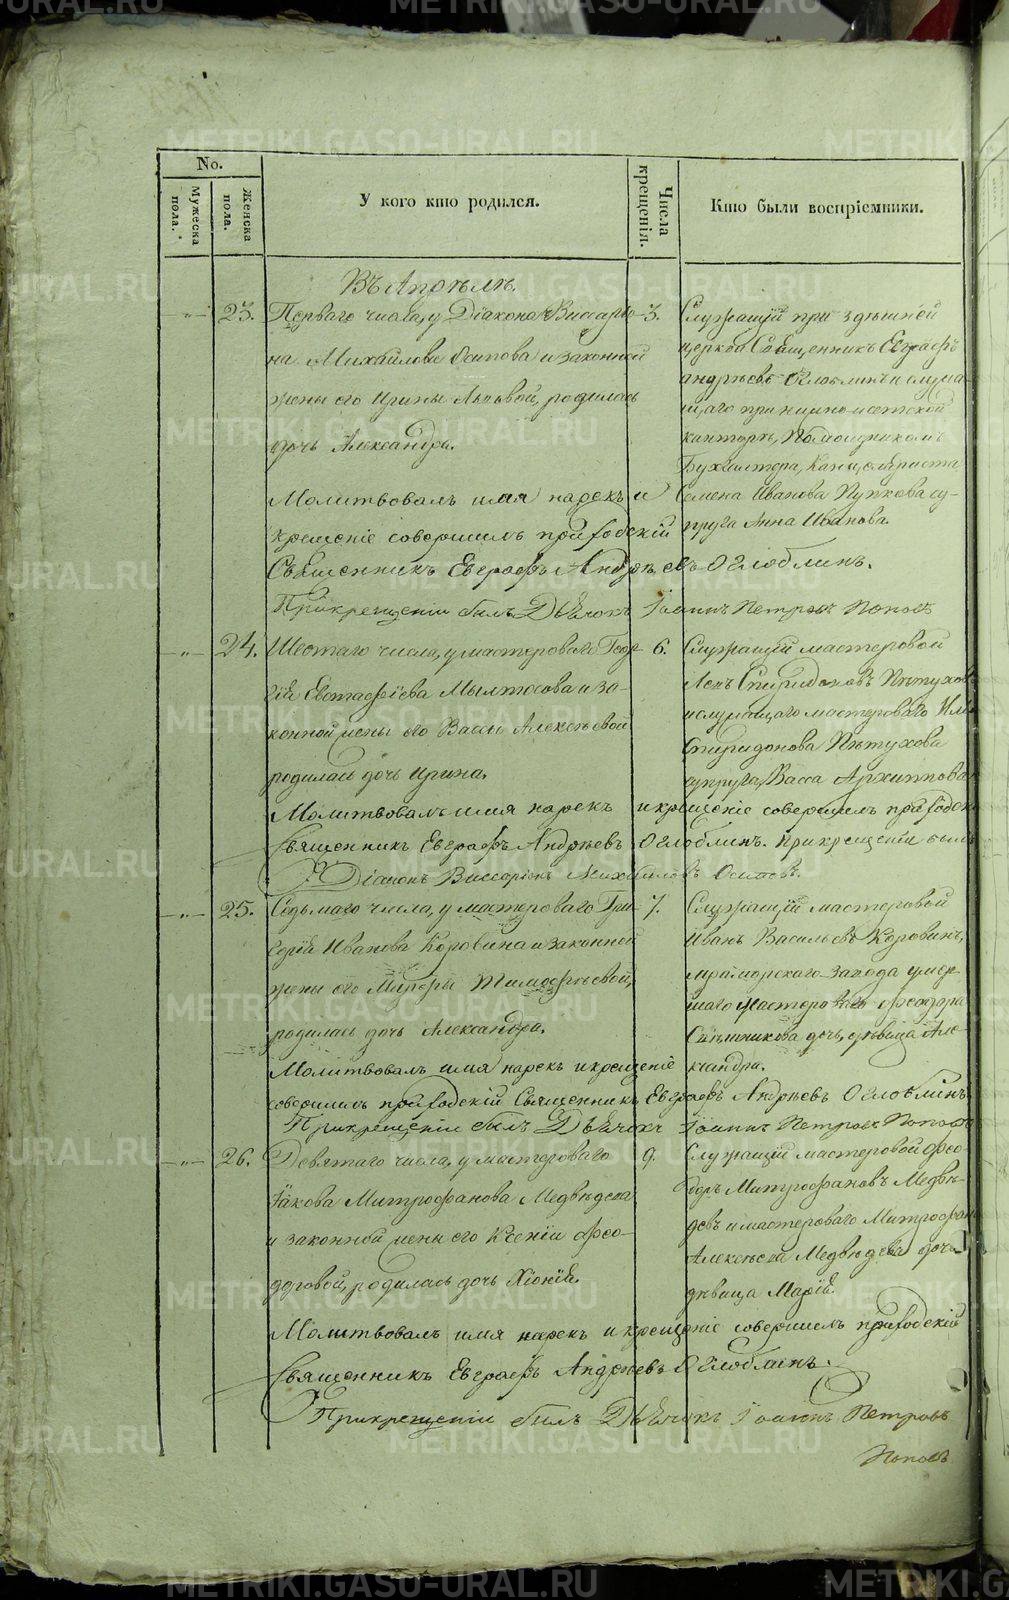 No.
Мужеска пола.
Женска пола.
У кого кто родился.
Числа крещенія.
Кто были воспріемники.
Въ Апрѣлѣ.
23.
Перваго числа, у Діакона Виссаріо-
на Михайлова Осипова и законной
жены его Ирины Львовой, родилась
дочь Александра.
3.
Служащій при здѣшней
церкви Священникъ Евграфъ
Андрѣевъ Оглоблинъ и служа-
щаго при нижно-исетской
канторѣ, Помощникомъ
Бухгалтера, Канцеляриста
Семена Иванова Пупкова су-
пруга Анна Иванова.
Молитвовалъ имя нарекъ и
крещеніе совершилъ приходскій
Священникъ Евграфъ Андрѣевъ Оглоблинъ.
При крещеніи былъ Дьячокъ Іоаннъ Петровъ Поповъ
24.
Шестаго числа, у мастероваго Геор-
гія Евстафіева Мылтасова и за-
конной жены его Вассы Алексѣевой
родилась дочь Ирина.
6.
Служащій мастеровой
Левъ Спиридоновъ Пѣтухов
и служащаго мастероваго Ильи
Спиридонова Пѣтухова
супруга, Васса Архиппова
Молитвовалъ имя нарекъ и крещеніе совершилъ приходск
Священникъ Евграфъ Андрѣевъ Оглоблинъ. При крещеніи былъ
Діаконъ Виссаріонъ Михайловъ Осиповъ.
25.
Седьмаго числа, у мастероваго Гри-
горія Иванова Коровина и законной
жены его Марфы Тимофѣевой,
родилась дочь Александра.
7.
Служащій мастеровой
Иванъ Васильевъ Коровинъ,
мраморскаго завода умер-
шаго мастероваго Феодора
дочь, дѣвица Але-
ксандра.
Молитвовалъ имя нарекъ и крещеніе
совершилъ приходскій Священникъ Евграфъ Андрѣевъ Оглоблинъ
При крещеніи былъ Дьячокъ Іоаннъ Петровъ Поповъ
26.
Девятаго числа, у мастероваго
Іакова Митрофанова Медвѣдева
и законной жены его Ксеніи Фео-
доровой, родилась дочь Хіонія.
9.
Служащій мастеровой Фео-
доръ Митрофановъ Медвѣ-
девъ и мастероваго Митрофана
Алексѣева Медвѣдева дочь
дѣвица Марія.
Молитвовалъ имя нарекъ и крещеніе совершилъ приходскій
Священникъ Евграфъ Андрѣевъ Оглоблинъ.
При крещеніи былъ Дьячокъ Іоаннъ Петровъ
Поповъ
METRIKI.GASO-URAL.RU